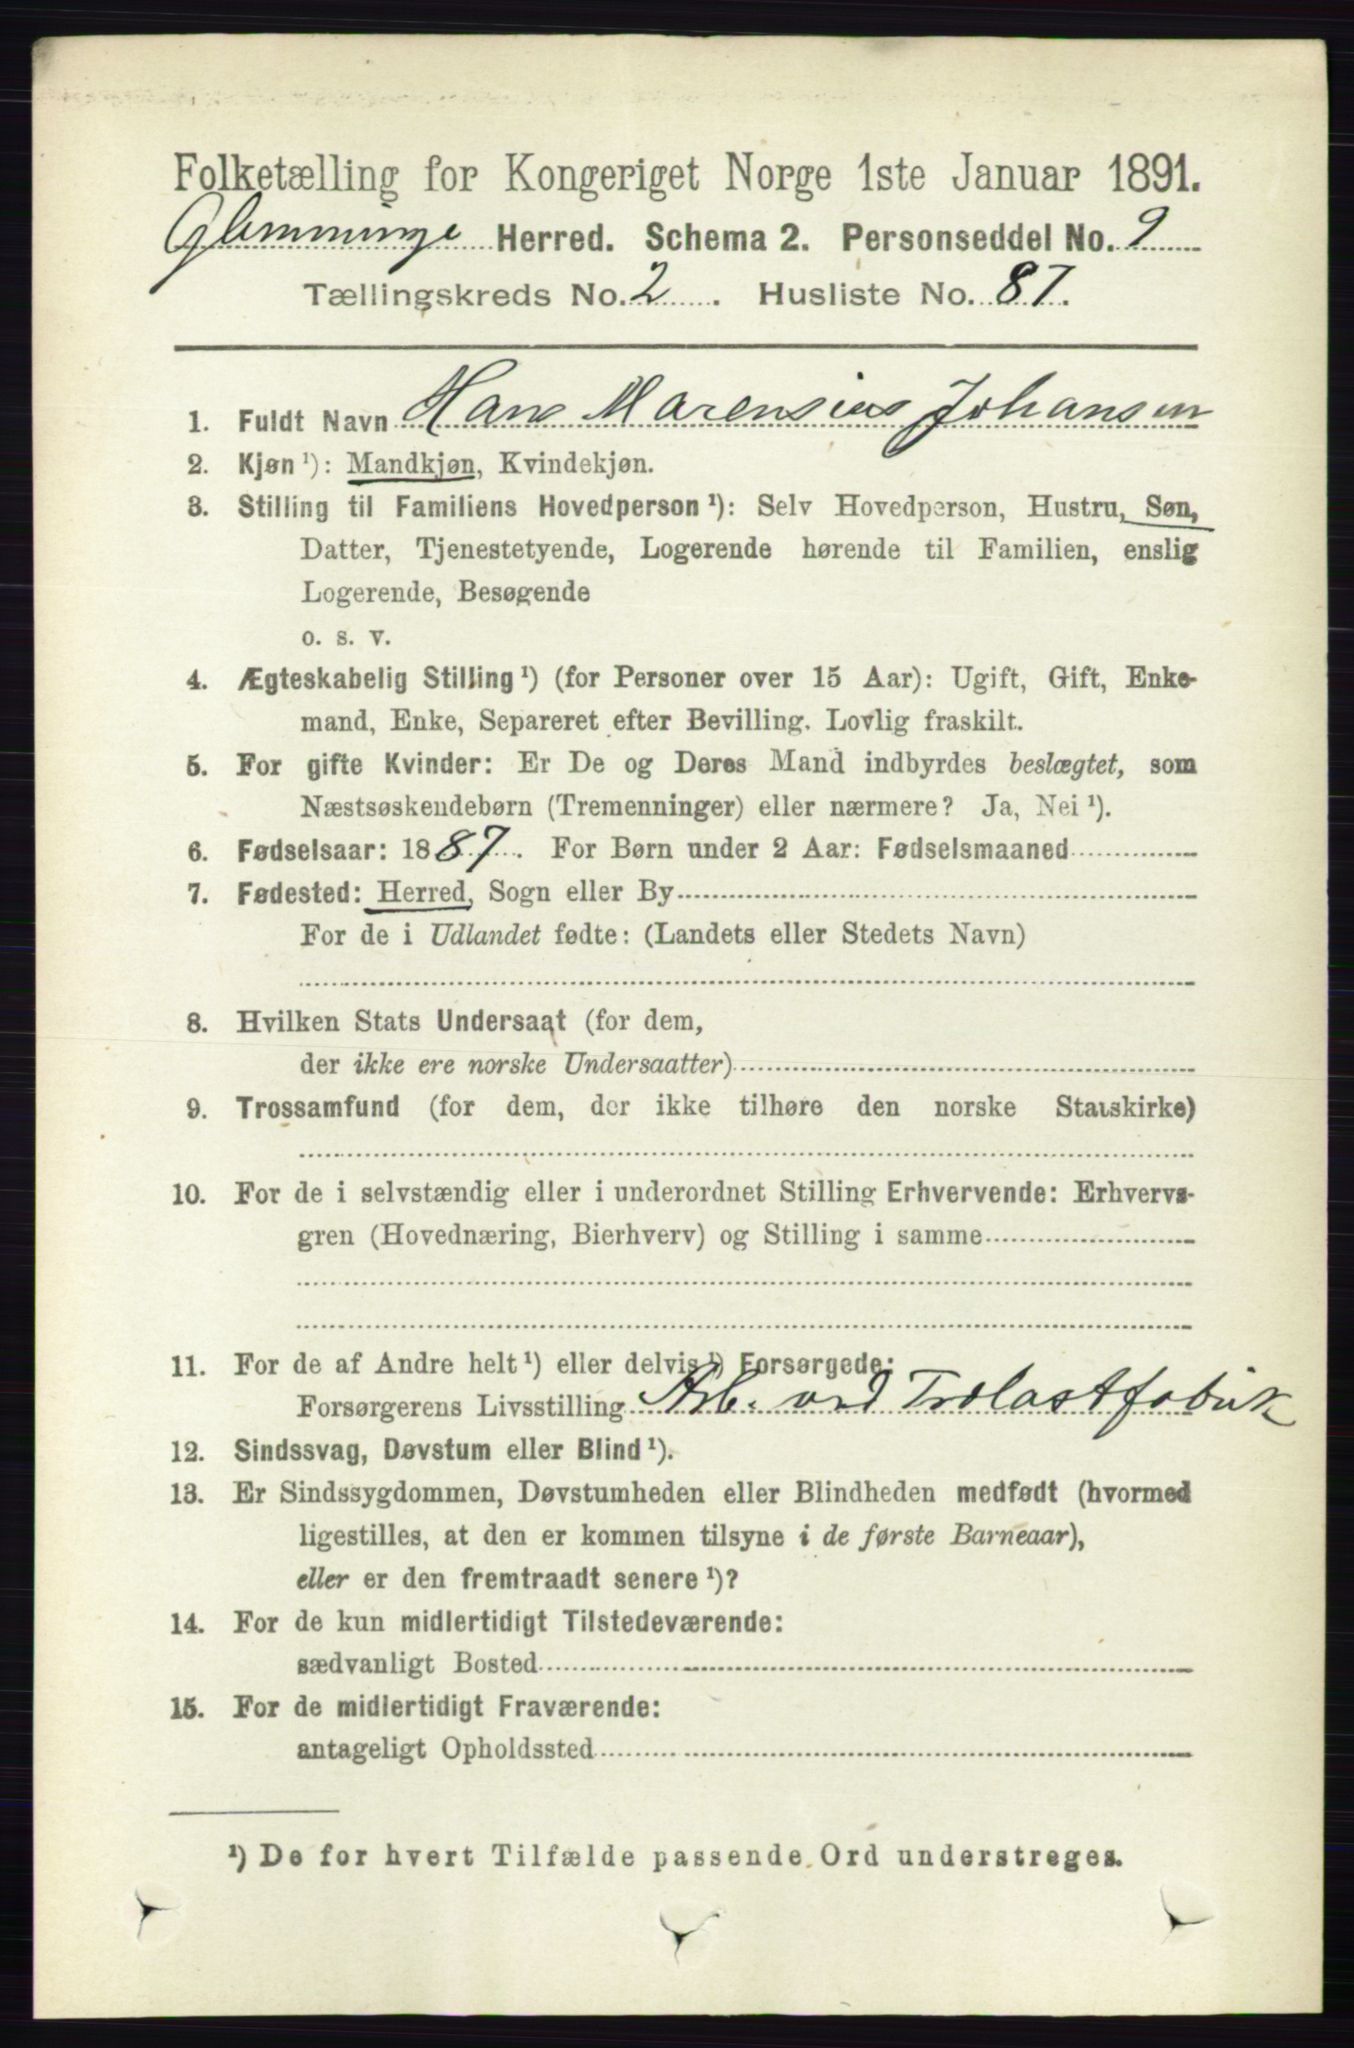 Folketælling for Kongeriget Norge 1ste Januar 1891.
Glemminge Herred. Schema 2. Personseddel No. 9
Tællingskreds No. 2 . Husliste No. 87.
1. Fuldt Navn Hans Marensius Johansen
2. Kjøn ¹): Mandkjøn, Kvindekjøn.
3. Stilling til Familiens Hovedperson ¹): Selv Hovedperson, Hustru, Søn,
Datter, Tjenestetyende, Logerende hørende til Familien, enslig
Logerende, Besøgende
o. s. v.
4. Ægteskabelig Stilling ¹) (for Personer over 15 Aar): Ugift, Gift, Enke-
mand, Enke, Separeret efter Bevilling. Lovlig fraskilt.
5. For gifte Kvinder: Er De og Deres Mand indbyrdes beslægtet, som
Næstsøskendebørn (Tremenninger) eller nærmere? Ja, Nei ¹).
6. Fødselsaar: 1887. For Børn under 2 Aar: Fødselsmaaned
7. Fødested: Herred, Sogn eller By
For de i Udlandet fødte: (Landets eller Stedets Navn)
8. Hvilken Stats Undersaat (for dem,
der ikke ere norske Undersaatter)
9. Trossamfund (for dem, der ikke tilhøre den norske Statskirke)
10. For de i selvstændig eller i underordnet Stilling Erhvervende: Erhvervs-
gren (Hovednæring, Bierhverv) og Stilling i samme
11. For de af Andre helt ¹) eller delvis ¹) Forsørgede:
Forsørgerens Livsstilling Arb. ved Trælastfabrik
12. Sindssvag, Døvstum eller Blind ¹).
13. Er Sindssygdommen, Døvstumheden eller Blindheden medfødt (hvormed
ligestilles, at den er kommen tilsyne i de første Barneaar),
eller er den fremtraadt senere ¹)?
14. For de kun midlertidigt Tilstedeværende:
sædvanligt Bosted
15. For de midlertidigt Fraværende:
antageligt Opholdssted
¹) De for hvert Tilfælde passende Ord understreges.